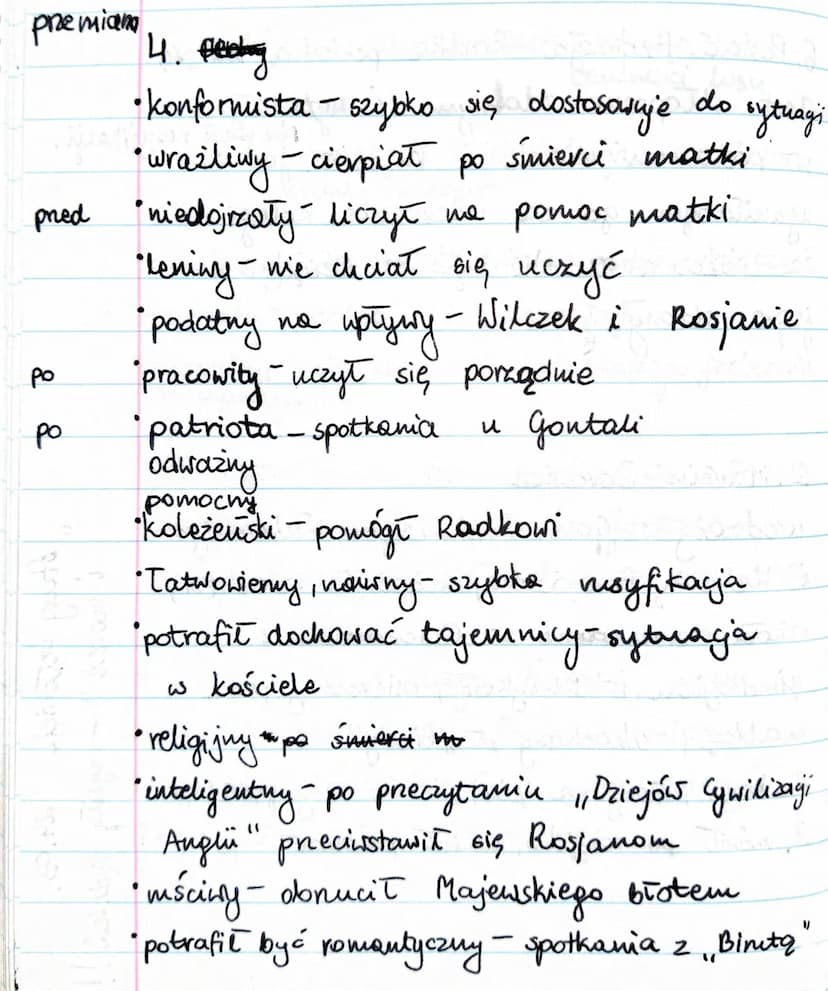 przemiana
4.
• konformista – szybko się dostosowuje do sytuacji
• wrażliwy – cierpiał po śmierci matki
przed • niedojrzały – liczył na pomoc matki
• leniwy – nie chciał się uczyć
• podatny na wpływy – Wilczek i Rosjanie
po • pracowity – uczył się porządnie
po • patriota – spotkania u Gontali
odważny
pomocny
• koleżeński – pomógł Radkowi
• łatwowierny, naiwny – szybka rusyfikacja
• potrafił dochować tajemnicy – sytuacja
w kościele
• religijny – po śmierci m
• inteligentny – po przeczytaniu „Dziejów Cywilizacji
Anglii" przeciwstawił się Rosjanom
• mściwy – obrzucił Majewskiego błotem
• potrafił być romantyczny – spotkania z „Birutą"